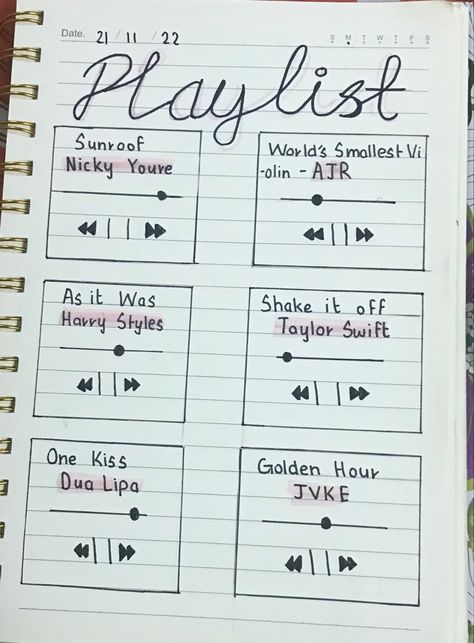 Date. 21 / 11 / 22
S M T W T F S
Playlist
Sunroof
Nicky Youre
World's Smallest Vi
-olin - AJR
As it Was
Harry Styles
Shake it off
Taylor Swift
One Kiss
Dua Lipa
Golden Hour
JVKE